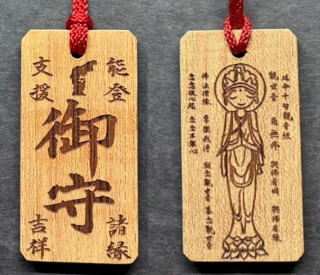 能登
支援
御守
諸縁
吉祥
延命十句観音経
観世音 南無佛
與佛有因 與佛有縁
佛法僧縁 常樂我淨
朝念觀世音 暮念觀世音
念念從心起 念念不離心